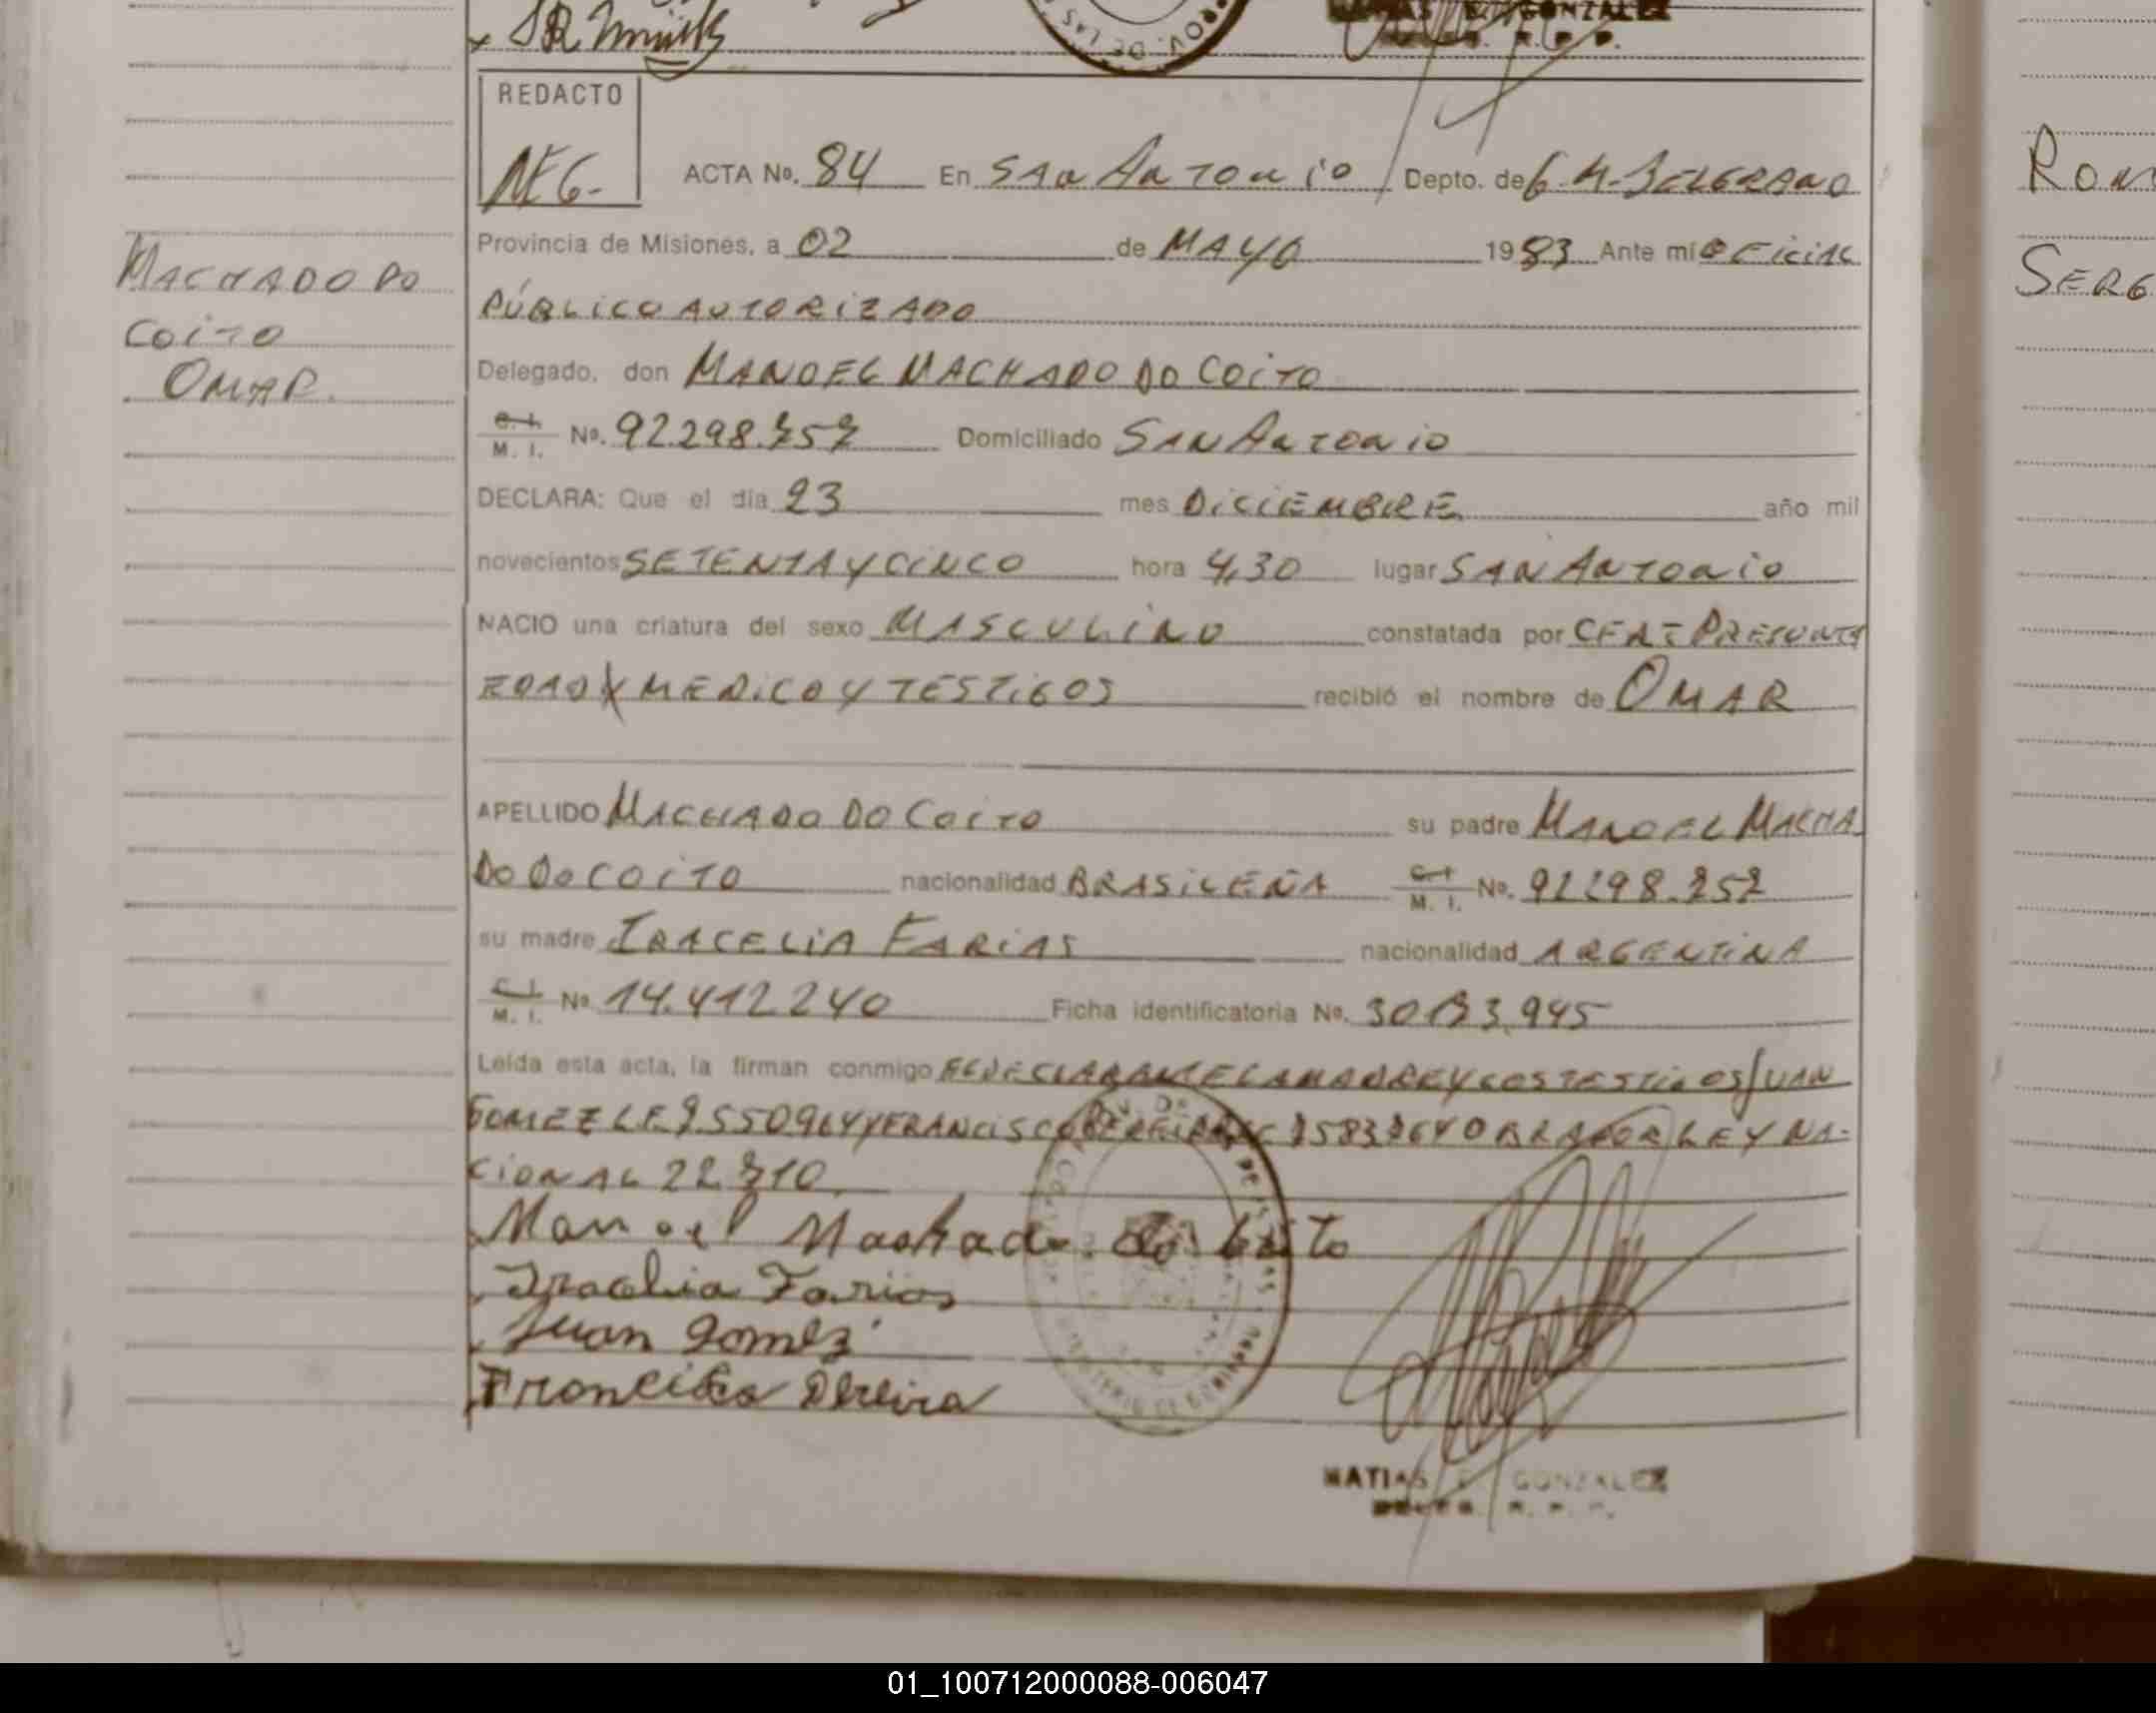 REDACTO
ACTA No. 84 En SAN ANTONIO Depto. de G. M. BELGRANO
Provincia de Misiones, a 02 de MAYO 1983 Ante mi OFICIAL
PÚBLICO AUTORIZADO
Delegado, don MANOEL MACHADO DO COITO
C. I. M. I. No. 92.298.757 Domiciliado SAN ANTONIO
DECLARA: Que el día 23 mes DICIEMBRE año mil
novecientos SETENTA Y CINCO hora 4,30 lugar SAN ANTONIO
NACIO una criatura del sexo MASCULINO constatada por CERT PRESUNTA
EDAD MEDICO Y TESTIGOS recibió el nombre de OMAR
APELLIDO MACHADO DO COITO su padre MANOEL MACHA
DO DO COITO nacionalidad BRASILEÑA C. I. M. I. No. 92298.757
su madre IRACELIA FARIAS nacionalidad ARGENTINA
C. I. M. I. No 14.412240 Ficha identificatoria No. 945
Leída esta acta, la firman conmigo EL DECLARANTE LA MADRE Y LOS TESTIGOS JUAN
GOMEZ L.E 7550964 Y FRANCISCO PEREIRA LEY NA-
CIONAL 22.710
Manoel Machado do Coito
Iracelia Farias
Juan Gomez
Francisco Pereira
MATIAS E. GONZALEZ
MACHADO DO
COITO
OMAR.
SERG
01_100712000088-006047